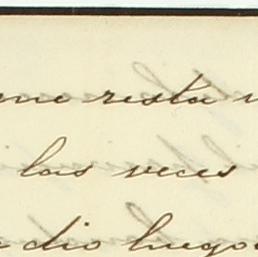 me resta
las veces
dio luego